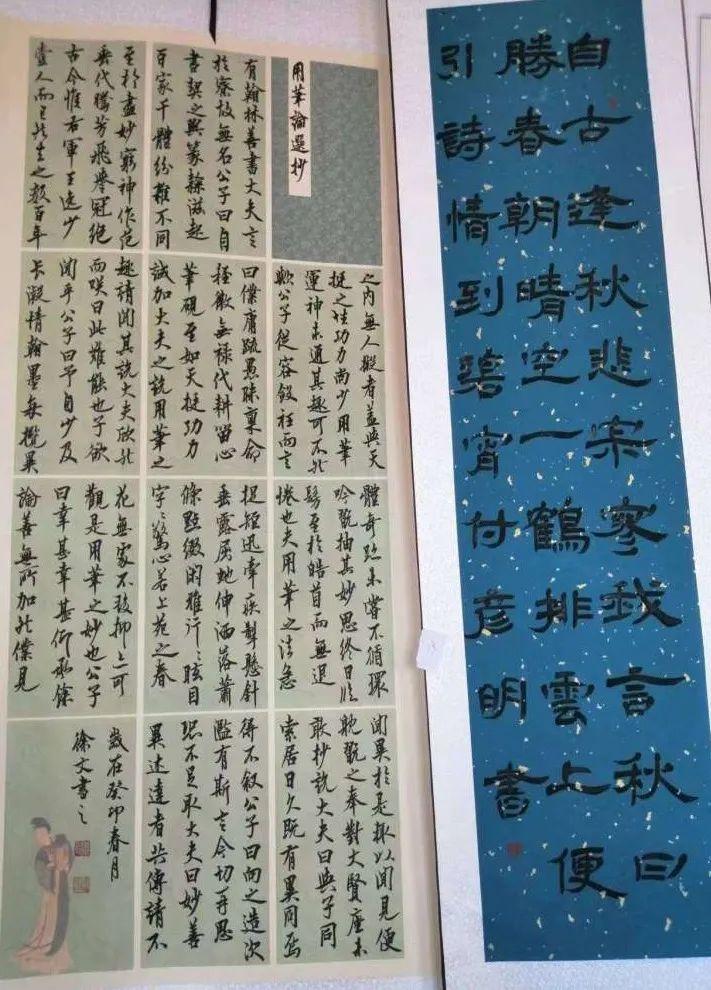 用筆論選抄
有翰林善書大夫言
於寮故無名公子曰自
書契之興篆隸滋起
百家千體紛雜不同
至於盡妙窮神作范
垂代騰芳飛譽冠絕
古今惟右軍王逸少
壹人而已然去之數百年
之內無人擬者蓋與天
挺之性功力尚少用筆
運神未通其趣可不然
歟公子從容斂衽而言
曰僕庸疏愚昧稟命
輕微無祿代耕留心
筆硯至如天挺功力
誠加大夫之說用筆之
趣請聞其說大夫欣然
而咲曰此難能也子欲
聞乎公子曰予自少及
長凝情翰墨每攬異
體奇跡未嘗不循環
吟翫抽其妙思終日臨
至於皓首而無退
倦也夫用筆之法急
捉短迅牽疾掣懸針
垂露屈蛇伸洒落蕭
條點綴閑雅行々眩目
字々驚心若上苑之春
花無家不發抑々可
觀是用筆之妙也公子
曰幸甚幸甚仰承餘
論善無所加然僕見
聞異於是輒以聞見便
躭翫之奉對大賢座未
敢抄說大夫曰與子同
索居日久既有異同焉
得不敘公子曰向之造次
濫有斯言今切再思
恐不足取大夫曰妙善
異述達者共傳請不
歲在癸卯春月
徐文書之
自古逢秋悲寂寥我言秋日
勝春朝晴空一鶴排雲上便
引詩情到碧霄付彥明書